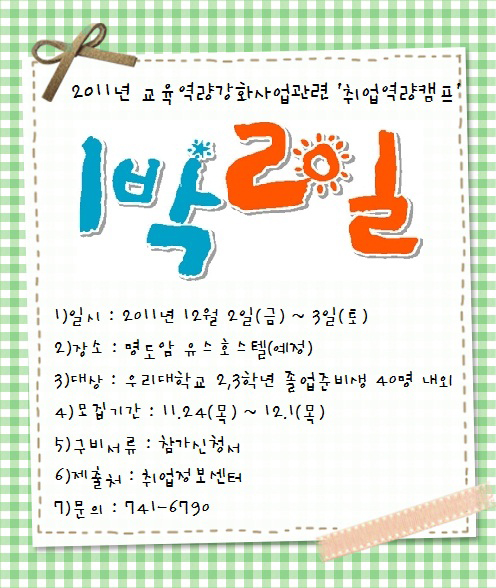 2011년 교육역량강화사업관련 '취업역량캠프'
1박2일
1)일시 : 2011년 12월 2일(금) ~ 3일(토)
2)장소 : 명도암 유스호스텔(예정)
3)대상 : 우리대학교 2,3학년 졸업준비생 40명 내외
4)모집기간 : 11.24(목) ~ 12.1(목)
5)구비서류 : 참가신청서
6)제출처 : 취업정보센터
7)문의 : 741-6790